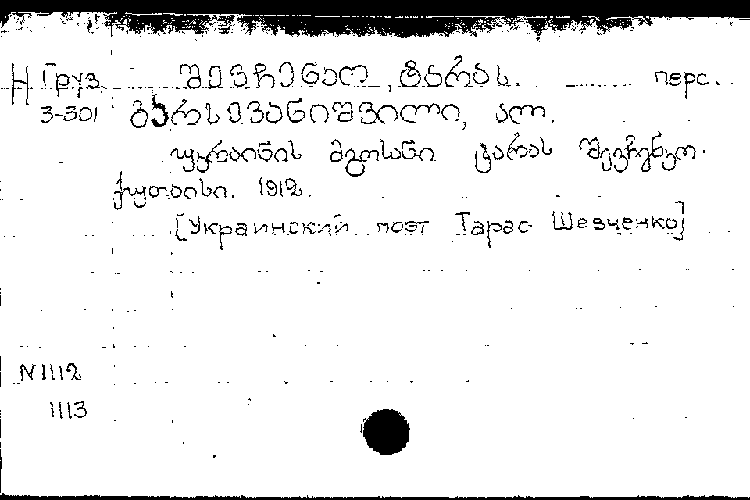 Н Груз. შევჩენკო, ტარას. перс.
3-301 ბარსევანიშვილი, ალ.
უკრაინის მგოსანი ტარას შევჩენკო.
ქუთაისი. 1912.
[Украинский поэт Тарас Шевченко]
N 1112
1113